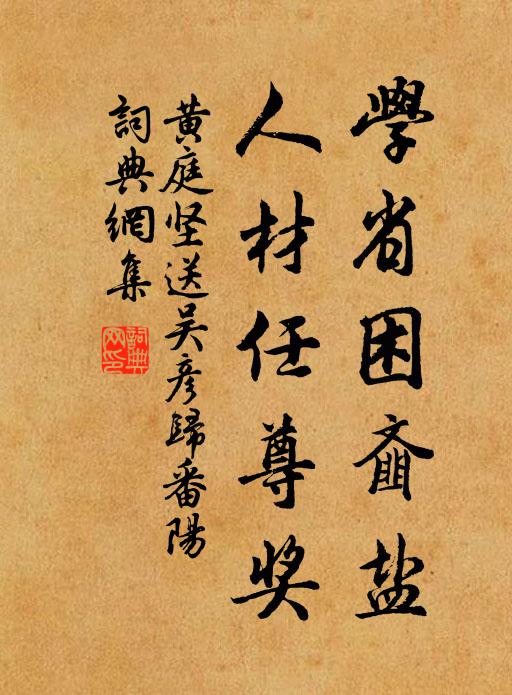 學省困齑盐
人材任尊奖
黄庭坚送吴彦歸番陽
詞典網集
詞典
网印